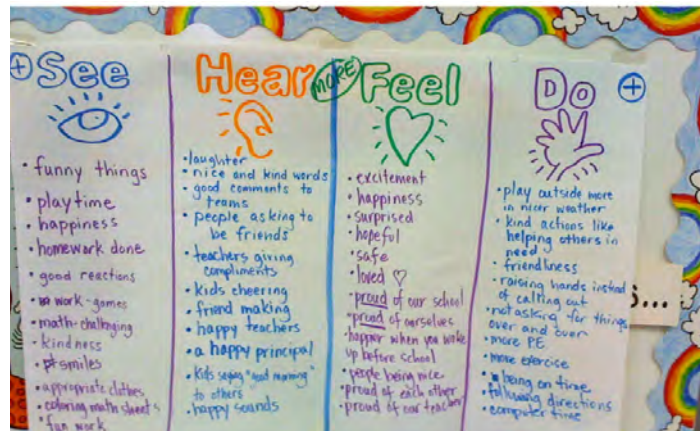 + See
funny things
playtime
happiness
homework done
good reactions
work-games
math-challnging
kindness
smiles
appropriate clothes
coloring math sheets
fun work
Hear
laughter
nice and kind words
good comments to
teams
people asking to
be friends
teachers giving
compliments
kids cheering
friend making
happy teachers
a happy principal
kids saying "good morning"
to others
happy sounds
MORE
Feel
excitement
happiness
surprised
hopeful
safe
loved ♡
proud of our school
proud of ourselves
happier when you woke
up before school
people being nice
proud of each other
proud of our teacher
Do +
play outside more
in nicer weather
kind actions like
helping others in
need
friendliness
raising hands instead
of calling out
not asking for things
over and over
more PE
more exercise
being on time
following directions
computer time
s...